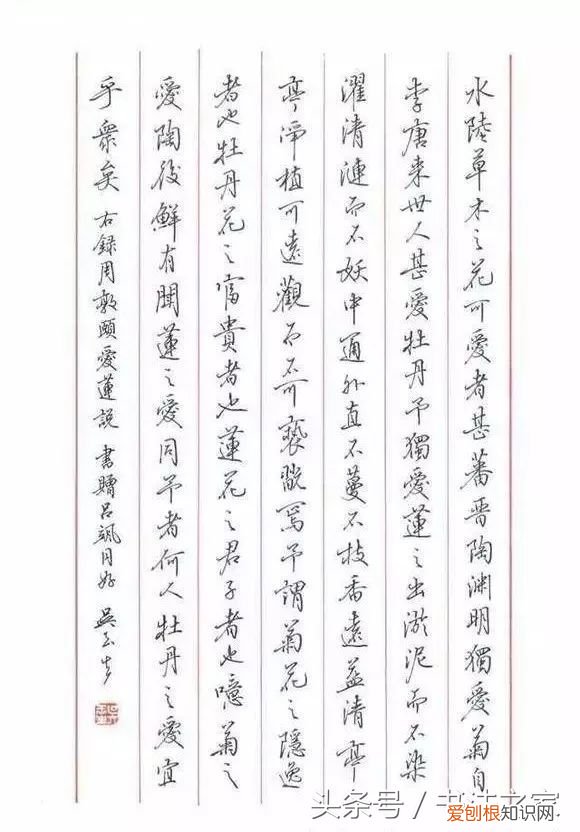 水陸草木之花可愛者甚蕃晋陶渊明獨愛菊自
李唐来世人甚愛牡丹予獨愛蓮之出淤泥而不染
濯清漣而不妖中通外直不蔓不枝香遠益清亭
亭淨植可遠觀而不可褻翫焉予謂菊花之隱逸
者也牡丹花之富貴者也蓮花之君子者也噫菊之
愛陶後鮮有聞蓮之愛同予者何人牡丹之愛宜
乎衆矣 右録周敦頤愛蓮説 書贈吕颯同好 吴玉生
头条号 / 书法之家
爱刨根知识网